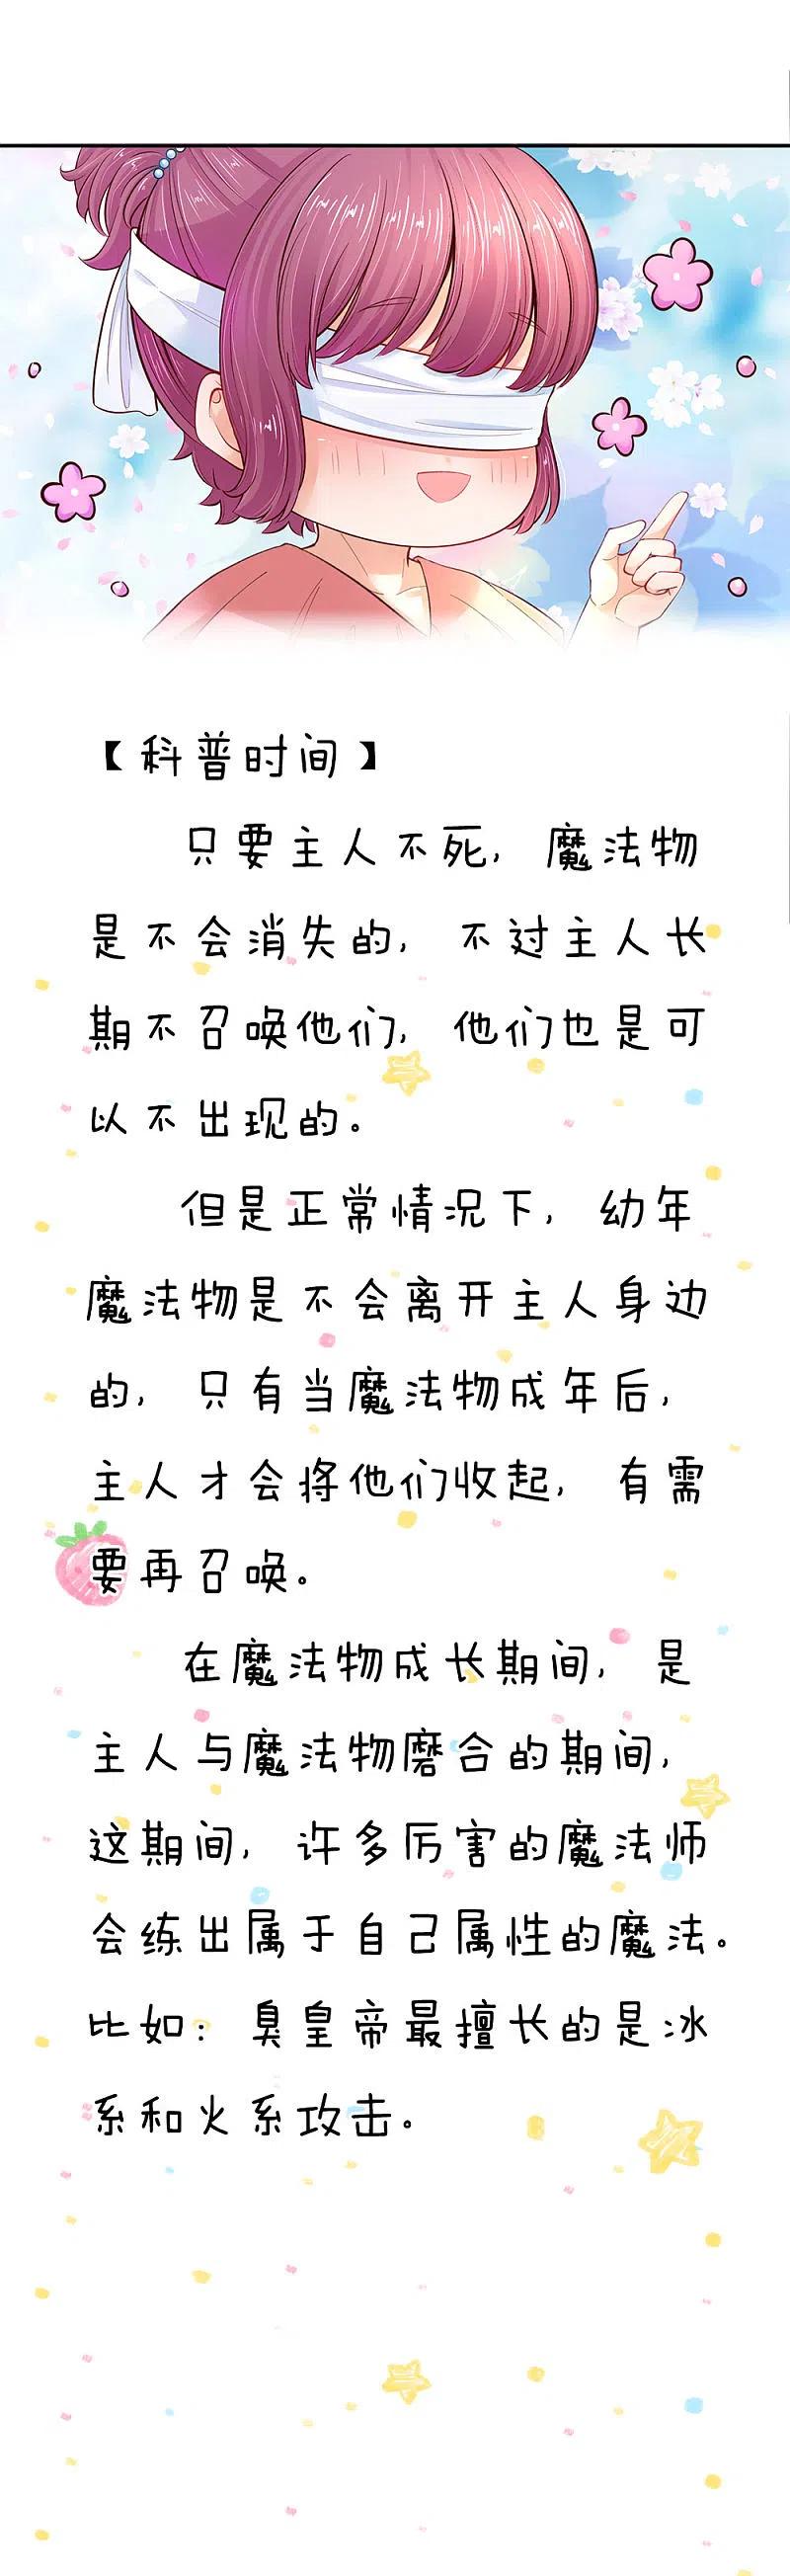 【科普时间】
只要主人不死，魔法物
是不会消失的，不过主人长
期不召唤他们，他们也是可
以不出现的。
但是正常情况下，幼年
魔法物是不会离开主人身边
的，只有当魔法物成年后，
主人才会将他们收起，有需
要再召唤。
在魔法物成长期间，是
主人与魔法物磨合的期间，
这期间，许多厉害的魔法师
会练出属于自己属性的魔法。
比如：臭皇帝最擅长的是冰
系和火系攻击。